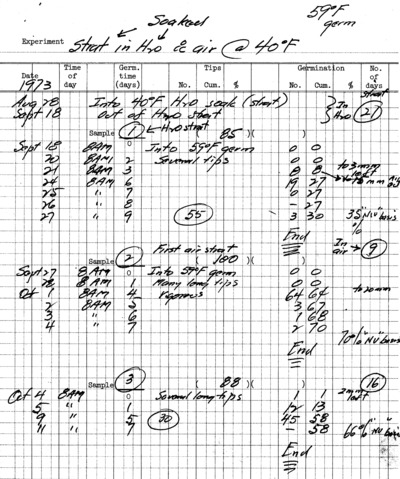 Soaked 59°F
germ
Experiment Strat in H2O & air @ 40°F
Time Germ. Tips Germination No.
Date of time of
1973 day (days) No. Cum. % No. Cum. % days
Aug 28 Into 40°F H2O soak (strat) In
Sept 18 out of H2O strat H2O 21
Sample 1 H2O strat ( 85 )( )
Sept 18 8AM 0 Into 59°F germ 0 0
20 8AM 2 Several tips 0 0
21 8AM 3 8 8 to 3mm
24 8AM 6 19 27
25 " 7 0 27
26 " 8 - 27
27 " 9 55 3 30 35 "NV" basis
%
End In
air 9
First air strat
Sample 2 ( 100 )( )
Sept 27 8AM 0 Into 59°F germ 0 0
28 8AM 1 Many long tips 0 0
Oct 1 8AM 4 Vigorous 64 64 to 20mm
2 8AM 5 3 67
3 " 6 1 68
4 " 7 2 70
70% "NV" basis
End
Sample 3 ( 88 )( ) 16
Oct 4 8AM 0 Several long tips 1 1 2mm
5 " 1 12 13
9 " 5 30 45 58
11 " 7 - 58 66% "NV" basis
End